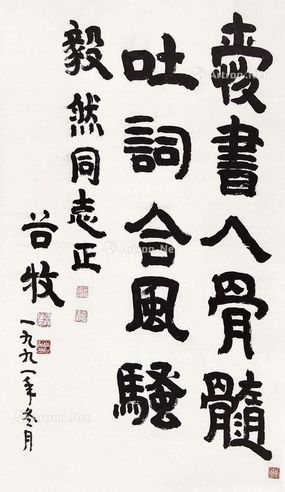 爱書入骨髓
吐詞合風騷
毅然同志正
谷牧
一九九一年冬月